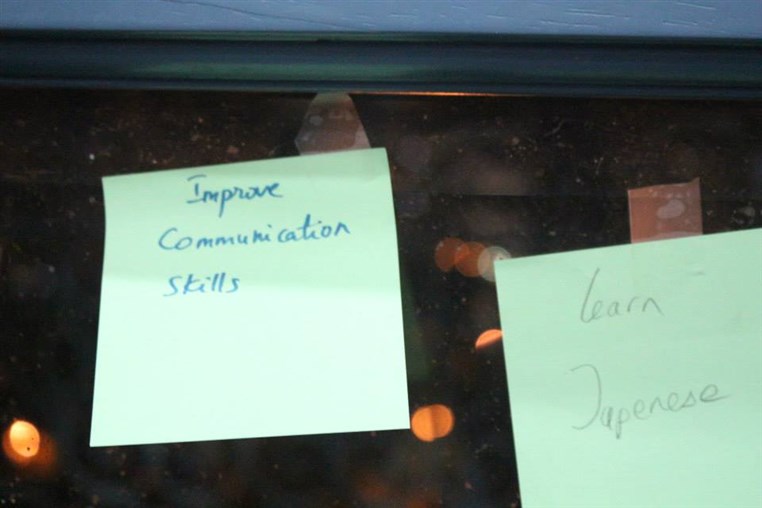 Improve
Communication
Skills
Learn
Japenese